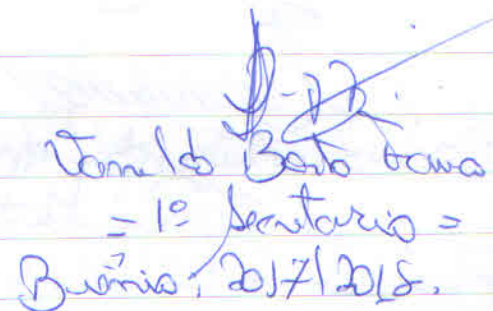 Vanildo Bento
= 1º Secretario =
Biênio, 2017/2018.